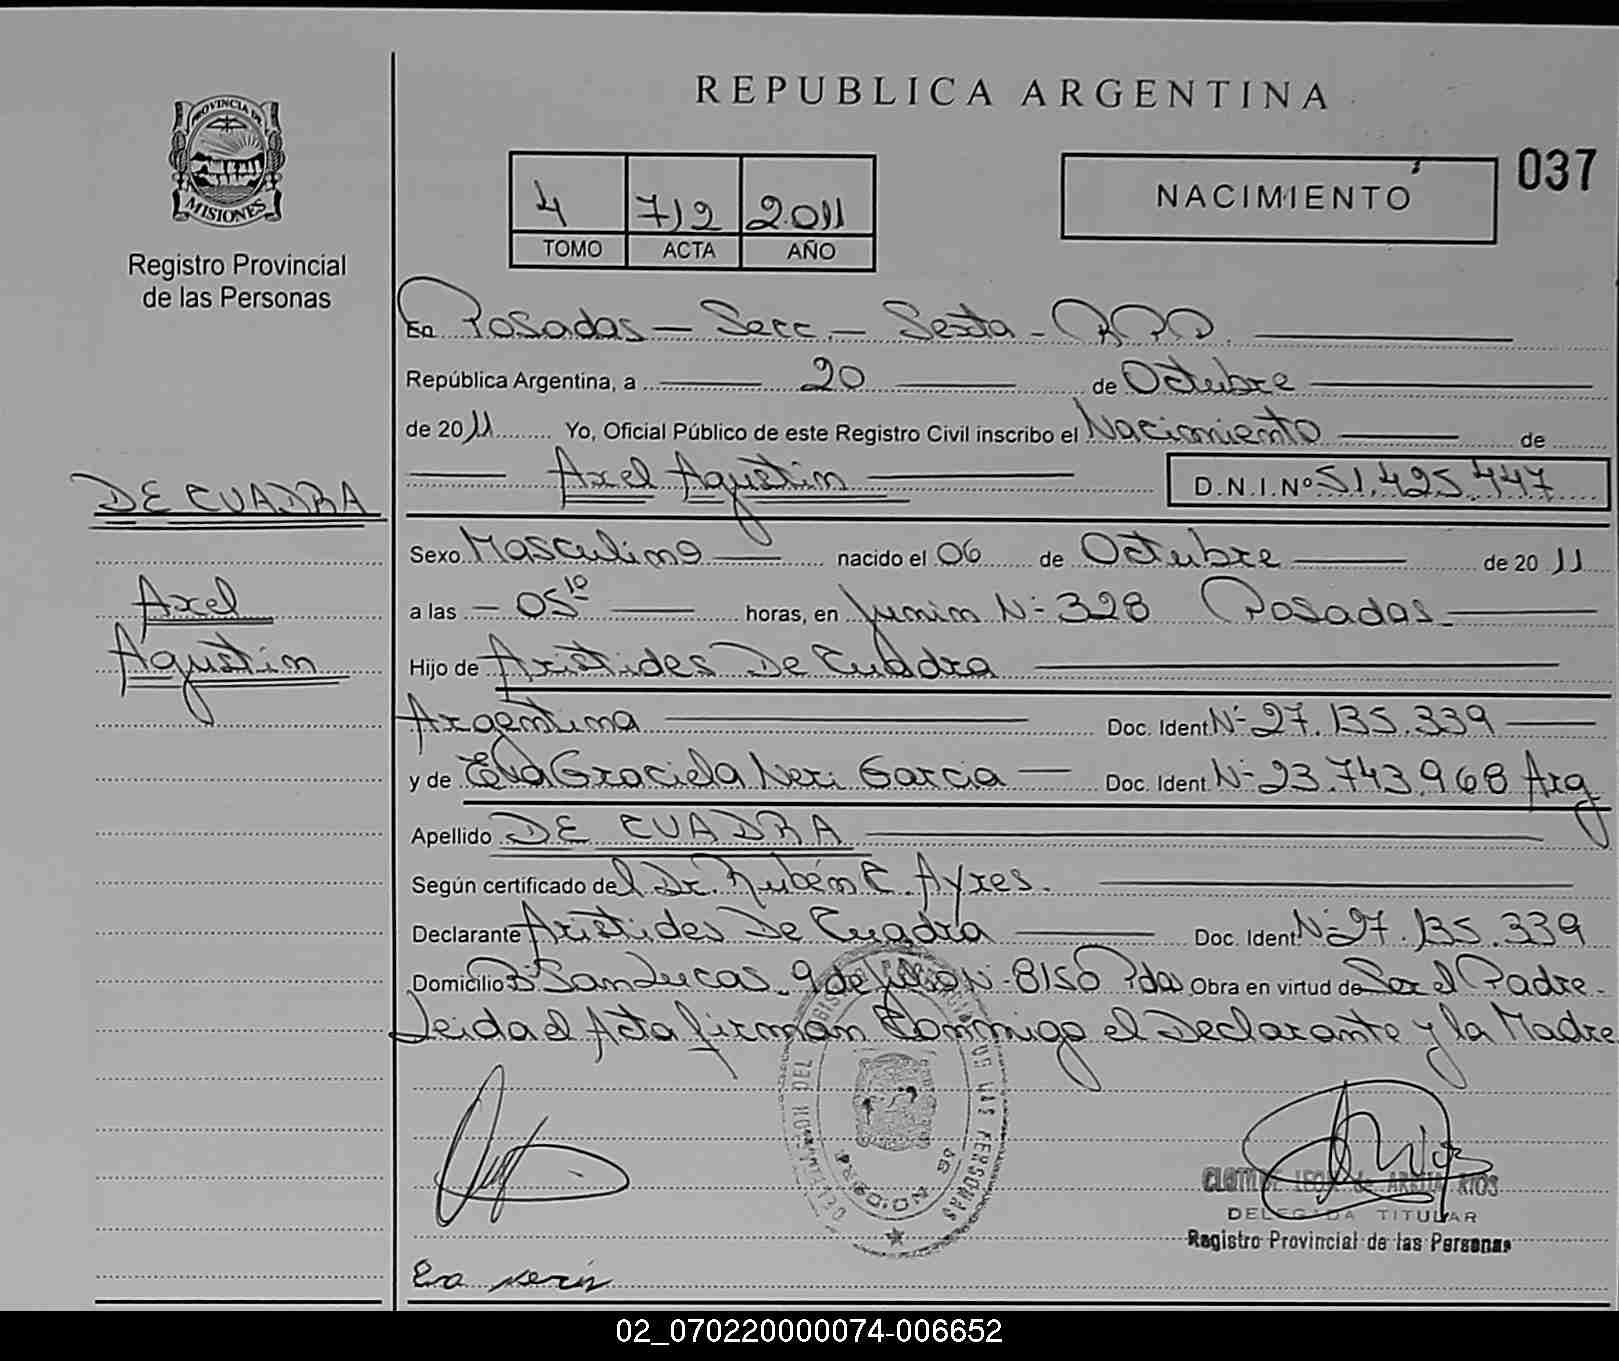 REPUBLICA ARGENTINA
PROVINCIA DE
MISIONES
Registro Provincial
de las Personas
037
NACIMIENTO
4 712 2011
TOMO ACTA AÑO
En Posadas - Secc - Sexta - RPP
República Argentina, a 20 de Octubre
de 2011 Yo, Oficial Público de este Registro Civil inscribo el Nacimiento de
Axel Agustin D.N.I.Nº 51.425.447
DE CUADRA
Axel
Agustin
Sexo Masculino nacido el 06 de Octubre de 2011
a las - 05¹⁰ horas, en Junin N- 328 Posadas
Hijo de Aristides De Cuadra
Argentina Doc. Ident N- 27.135.339
y de Eva Graciela Neri Garcia Doc. Ident N- 23.743.968 Arg
Apellido DE CUADRA
Según certificado del Dr. Rubén E Ayres.
Declarante Aristides De Cuadra Doc. Ident N- 27.135.339
Domicilio B° San Lucas 9 de Julio N- 8150 Pdas Obra en virtud de Ser el Padre.
Leida el Acta firman Conmigo el Declarante y la Madre
DE LAS PERSONAS
DELEGADA TITULAR
Registro Provincial de las Personas
Eva Neris
02_070220000074-006652